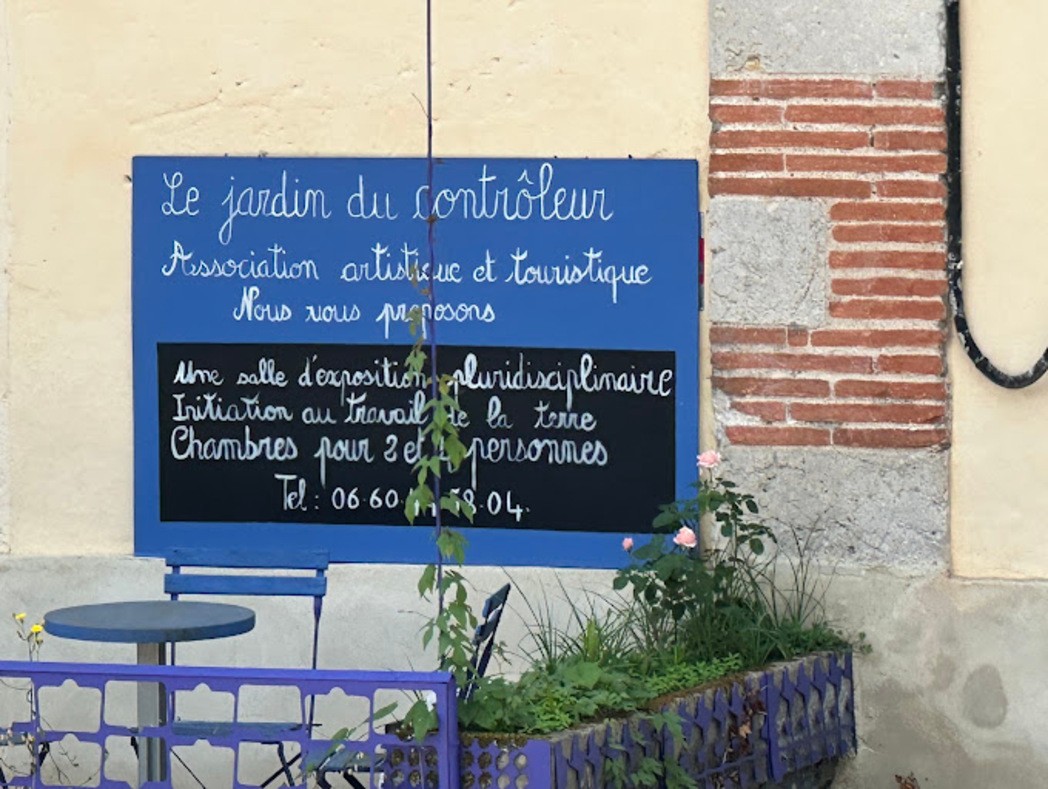 Le jardin du contrôleur
Association artistique et touristique
Nous vous proposons
Une salle d'exposition pluridisciplinaire
Initiation au travail de la terre
Chambres pour 2 et personnes
Tel : 06.60. .58.04.